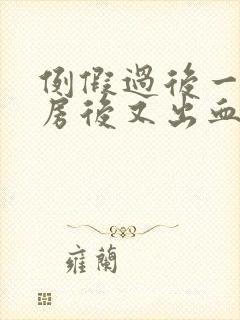 例假過後一
房後又出血
雍蘭